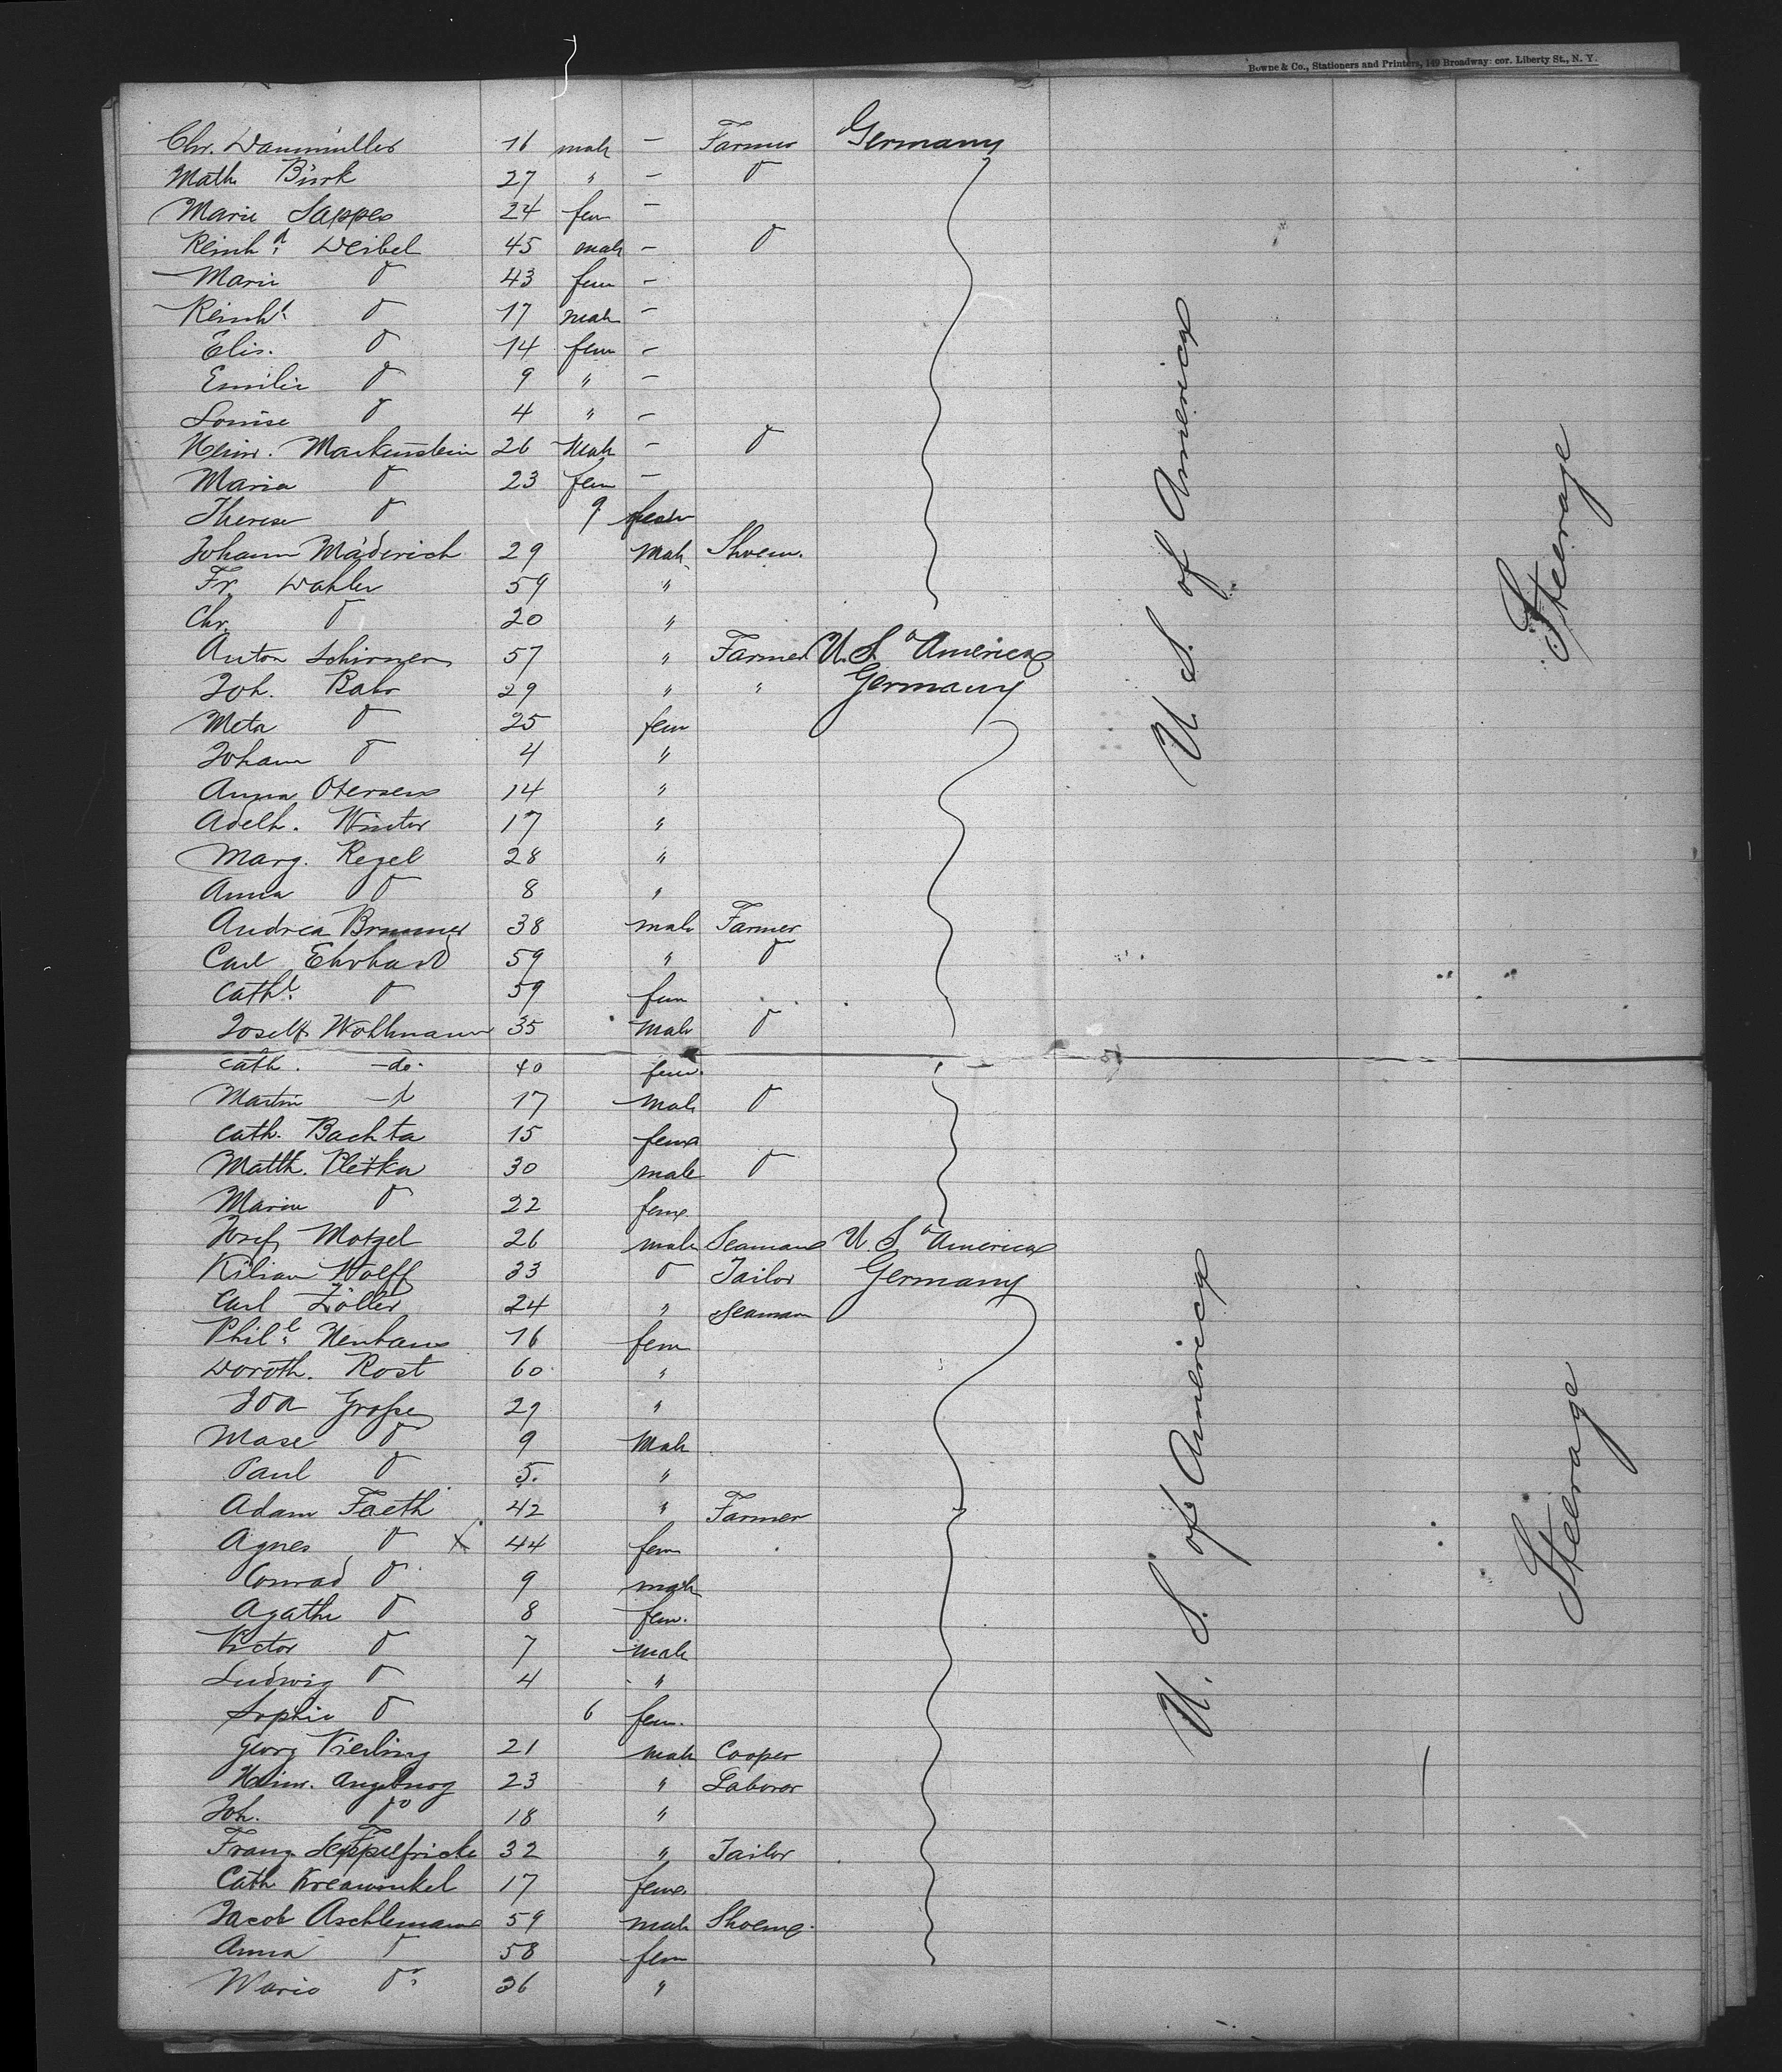 Bowne & Co., Stationers and Printers, 149 Broadway: cor. Liberty St., N. Y.
Chr. Dammüller 16 male — Farmer Germany
Math Bürk 27 " — do
Marie Sappes 24 fem —
Reinhd. Weibel 45 male — do
Marie do 43 fem —
Reinhd. do 17 male —
Elis. do 14 fem —
Emilie do 9 " —
Louise do 4 " —
Heinr. Markenstein 26 Male — do
Maria do 23 fem —
Therese do 9 fem
Johann Mäderich 29 Male Shoem.
Fr. Wahler 59 "
Chr. do 20 "
Anton Schirmer 57 " Farmer U. S. o America
Joh. Bahr 29 " " Germany
Meta do 25 fem
Johann do 4 "
Anna Otersen 14 "
Adelh. Winter 17 "
Marg. Regel 28 "
Anna do 8 "
Andrea Brunner 38 male Farmer
Carl Ehrhard 59 " do
Cath. do 59 fem
Joseph Wohlmann 35 Male do
Cath. —do. 40 fem.
Martin —do 17 Male do
Cath. Bachta 15 fem
Matth. Pletka 30 male do
Marie do 22 fem
Josef Motzel 26 male Seaman U. S. o America
Kilian Wolff 33 do Tailor Germany
Carl Zöller 24 " Seaman
Phile. Nenhaus 16 fem
Doroth. Rost 60 "
Ida Grosse 29 "
Mase do 9 Male
Paul do 5. "
Adam Faeth 42 " Farmer
Agnes do x 44 fem
Conrad do 9 male
Agathe do 8 fem.
Victor do 7 male
Ludwig do 4 "
Sophie do 6 fem.
Georg Vierling 21 male Cooper
Heinr. 23 " Laborer
Joh. do 18 "
Franz 32 " Tailor
Cath Kreawinkel 17 fem
Jacob Aschlemann 59 male Shoem.
Anna do 58 fem
Marie do 26 "
U. S. of America
Steerage
U. S. of America
Steerage